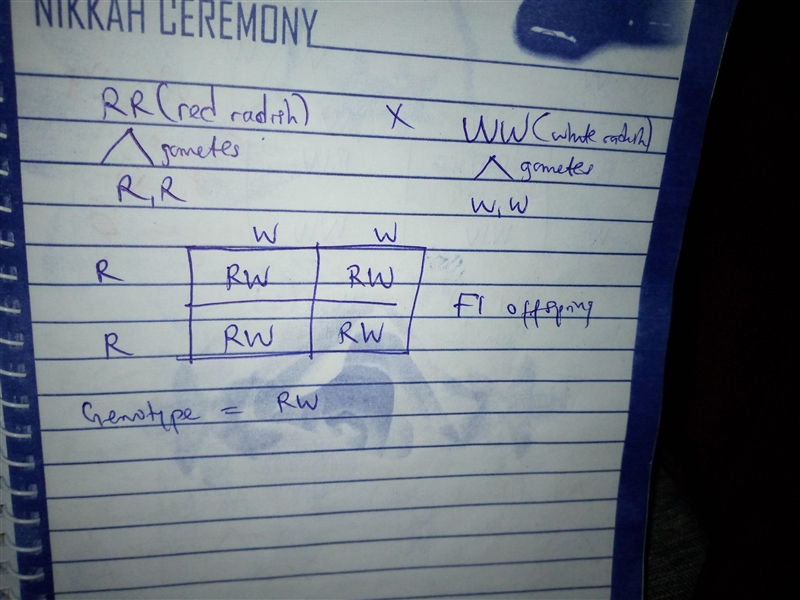 NIKKAH CEREMONY
RR (red radish) X WW (white radish)
gametes gametes
R, R W, W
W W
R RW RW
F1 offspring
R RW RW
Genotype = RW